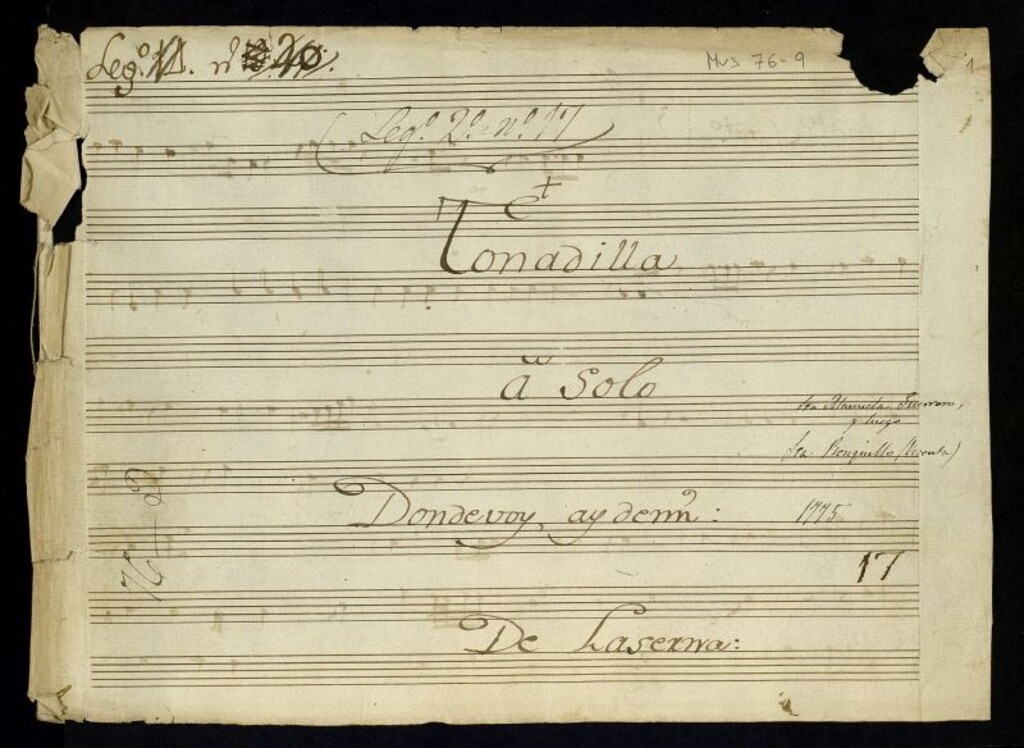 Leg.º 11. nº 20.
Mus 76-9
1
Leg.º 2.º nº 17
Tonadilla
a Solo
Sra Manuela Guerrero,
y luego
Sra. Ronquillo (Vicenta)
Donde voy, ay de mi:
1775
17
De Laserna: